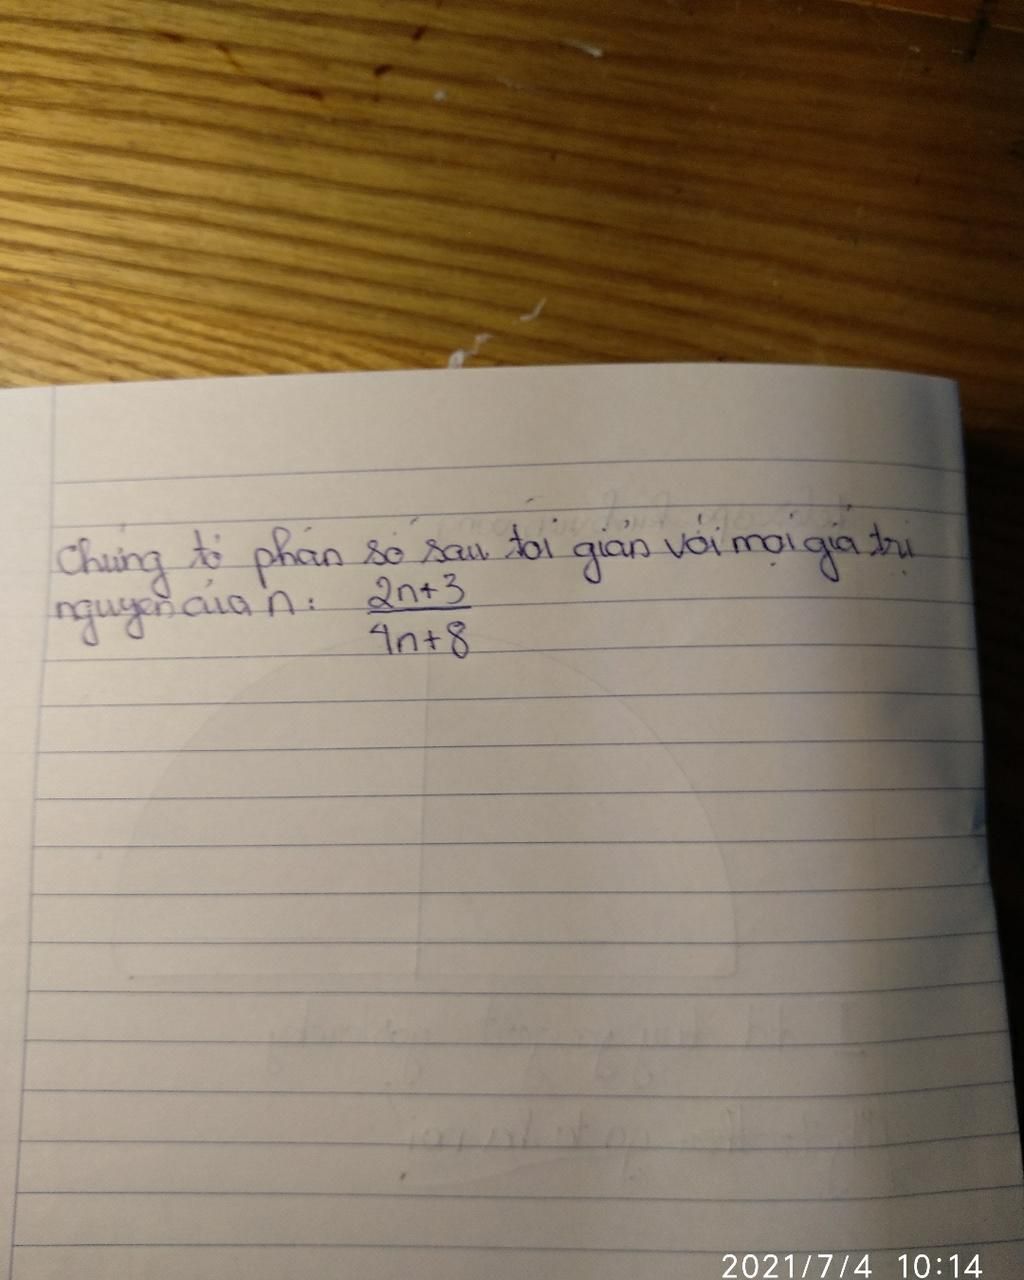 Chứng tỏ phân số sau tối giản với mọi giá trị
nguyên của n: 2n+3
4n+8
2021/7/4 10:14